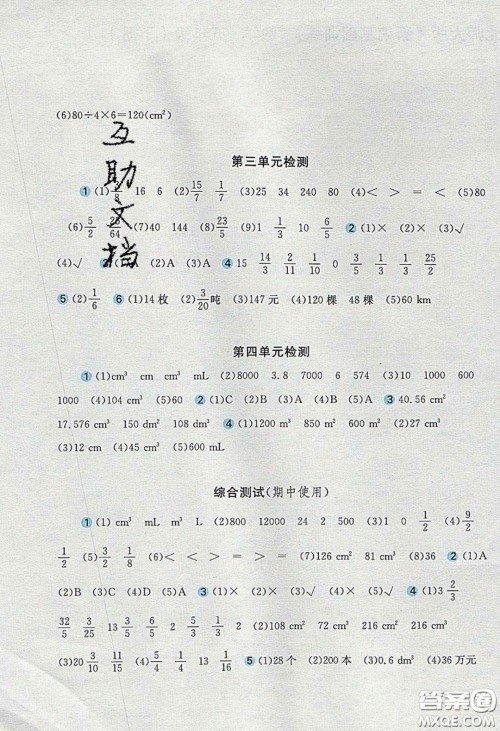 (6)80÷4×6=120(cm²)
互助文档
第三单元检测
1 (1) 16 6 (2)15/7 1/7 (3)25 34 240 80 (4)< > = < (5)80
(6)5/2 25/64 (7)40 144 (8)23/5 (9)1 1/3 10 6/5 2 (1)× (2)× (3)√
(4)√ (2)A (3)A 4 15 14/3 2/11 1/10 0 3/5 1/3 1/3 25/2
5 (2)1/6 6 (1)14枚 (2)3/20吨 (3)147元 (4)120棵 48棵 (5)60 km
第四单元检测
1 (1)cm³ cm cm³ mL (2)8000 3.8 7000 6 574 (3)10 1000 600
1000 (4)104 cm³ (5)60 2 (1)C (2)C (3)B (4)C (5)A 3 40.56 cm²
17.576 cm³ 150 dm² 108 dm³ 4 (1)1200 m³ 850 m² 600 m² (2)27 cm³
(3)12 cm (4)45 cm³ (5)600 mL
综合测试(期中使用)
1 (1)cm³ mL m³ L (2)800 12000 24 2 500 (3)1 0 1/2 (4)9/2
1/2 (5)3/2 1/8 (6)< < > = > (7)126 cm² 81 cm³ (8)36 2 (1)A
(2)B (3)C (4)D (5)A 3 (1)× (2)× (3)√ (4)× (5)√ 4 (1)3 2/3
32/5 3/25 13 3/2 5/6 5/3 1/3 2 (2)108 cm² 72 cm³ 216 cm² 216 cm³
(3)20 3/10 11/15 (4)5/4 1/4 13 1/16 5 (1)28个 (2)200本 (3)0.6 dm³ (4)36万元
答案圈
MXQE.COM